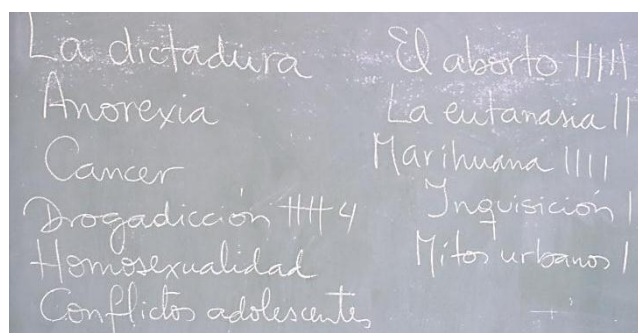 La dictadura
Anorexia
Cancer
Drogadicción 4
Homosexualidad
Conflictos adolescentes
El aborto
La eutanasia ||
Marihuana ||||
Inquisición |
Mitos urbanos |